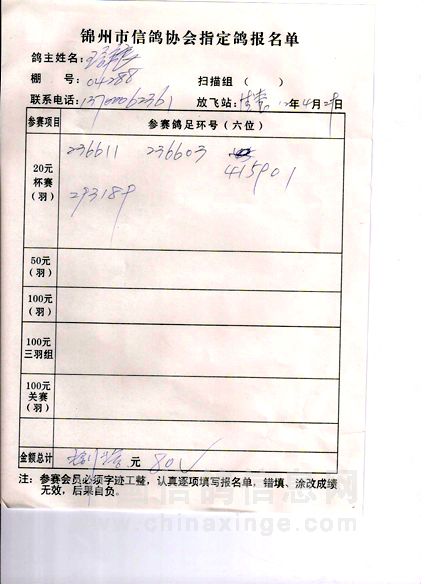 锦州市信鸽协会指定鸽报名单
鸽主姓名:
棚 号: 04288
扫描组 ( )
联系电话: 13700062361 放飞站: 12年4月29日
参赛项目 参赛鸽足环号（六位）
20元
杯赛
（羽）
236611 236603
415901
293189
50元
（羽）
100元
（羽）
100元
三羽组
100元
关赛
（羽）
金额总计 元 80
注: 参赛会员必须字迹工整，认真逐项填写报名单，错填、涂改成绩
无效，后果自负。
中国信鸽信息网
chinaxinge.com